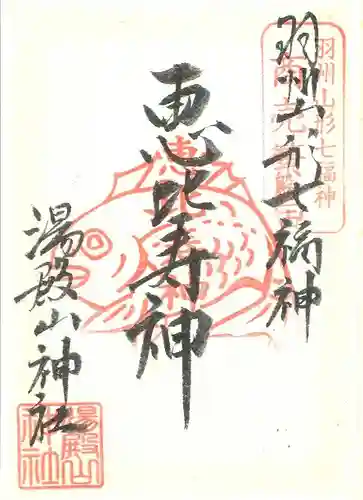 羽州山形七福神
羽州山形七福神
恵比寿神
湯殿山神社
湯殿山
神社